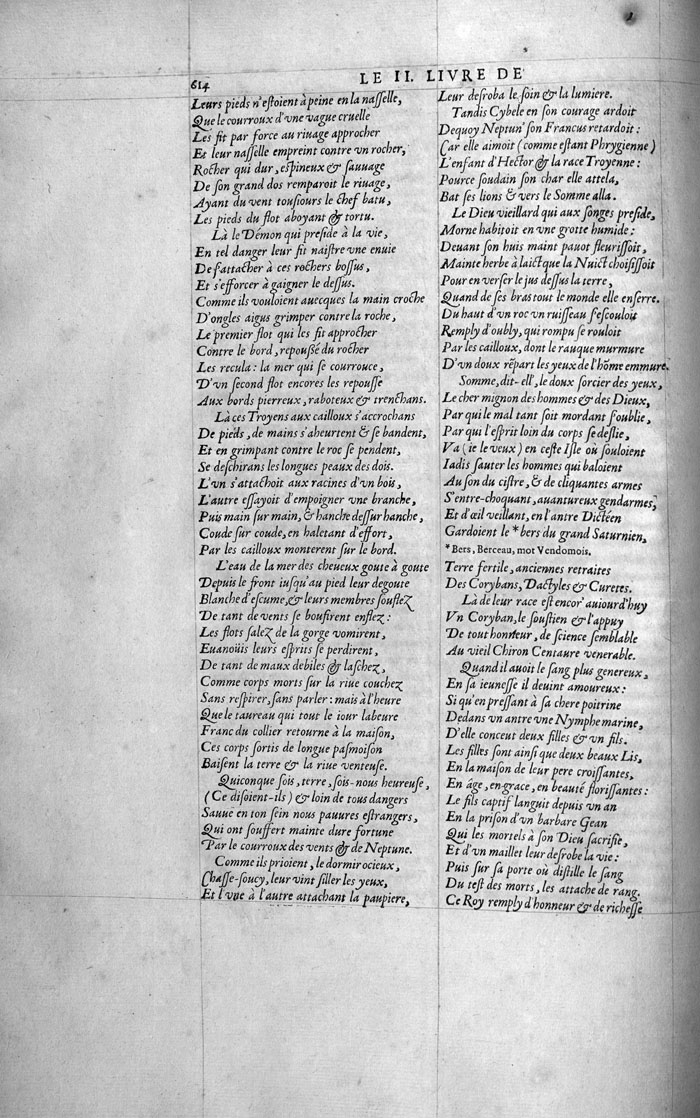 614
LE II. LIVRE DE
Leurs pieds n'estoient à peine en la nasselle,
Que le courroux d'vne vague cruelle
Les fit par force au riuage approcher
Et leur nasselle empreint contre vn rocher,
Rocher qui dur, espineux & sauuage
De son grand dos remparoit le riuage,
Ayant du vent tousiours le chef batu,
Les pieds du flot aboyant & tortu.
Là le Démon qui preside à la vie,
En tel danger leur fit naistre vne enuie
De s'attacher à ces rochers bossus,
Et s'efforcer à gaigner le dessus.
Comme ils vouloient auecques la main croche
D'ongles aigus grimper contre la roche,
Le premier flot qui les fit approcher
Contre le bord, repoußé du rocher
Les recula: la mer qui se courrouce,
D'vn second flot encores les repousse
Aux bords pierreux, raboteux & trenchans.
Là ces Troyens aux cailloux s'accrochans
De pieds, de mains s'aheurtent & se bandent,
Et en grimpant contre le roc se pendent,
Se deschirans les longues peaux des dois.
L'vn s'attachoit aux racines d'vn bois,
L'autre essayoit d'empoigner vne branche,
Puis main sur main, & hanche dessur hanche,
Coude sur coude, en haletant d'effort,
Par les cailloux monterent sur le bord.
L'eau de la mer des cheueux goute à goute
Depuis le front iusqu'au pied leur degoute
Blanche d'escume, & leurs membres souflez
De tant de vents se boufirent enflez:
Les flots salez de la gorge vomirent,
Euanoüis leurs esprits se perdirent,
De tant de maux debiles & laschez,
Comme corps morts sur la riue couchez
Sans respirer, sans parler: mais à l'heure
Que le taureau qui tout le iour labeure
Franc du collier retourne à la maison,
Ces corps sortis de longue pasmoison
Baisent la terre & la riue venteuse.
Quiconque sois, terre, sois-nous heureuse,
(Ce disoient-ils) & loin de tous dangers
Sauue en ton sein nous pauures estrangers,
Qui ont souffert mainte dure fortune
Par le courroux des vents & de Neptune.
Comme ils prioient, le dormir ocieux,
Chasse-soucy, leur vint siller les yeux,
Et l'vne à l'autre attachant la paupiere,
Leur desroba le soin & la lumiere.
Tandis Cybele en son courage ardoit
Dequoy Neptun' son Francus retardoit:
Car elle aimoit (comme estant Phrygienne)
L'enfant d'Hector & la race Troyenne:
Pource soudain son char elle attela,
Bat ses lions & vers le Somme alla.
Le Dieu vieillard qui aux songes preside,
Morne habitoit en vne grotte humide:
Deuant son huis maint pauot fleurissoit,
Mainte herbe à laict que la Nuict choisissoit
Pour en verser le jus dessus la terre,
Quand de ses bras tout le monde elle enserre.
Du haut d'vn roc vn ruisseau s'escouloit
Remply d'oubly, qui rompu se rouloit
Par les cailloux, dont le rauque murmure
D'vn doux répart les yeux de l'hõme emmure.
Somme, dit-ell', le doux sorcier des yeux,
Le cher mignon des hommes & des Dieux,
Par qui le mal tant soit mordant s'oublie,
Par qui l'esprit loin du corps se deslie,
Va (ie le veux) en ceste Isle où souloient
Iadis sauter les hommes qui baloient
Au son du cistre, & de cliquantes armes
S'entre-choquant, auantureux gendarmes,
Et d'œil veillant, en l'antre Dictéen
Gardoient le *bers du grand Saturnien,
*Bers, Berceau, mot Vendomois.
Terre fertile, anciennes retraites
Des Corybans, Dactyles & Curetes.
Là de leur race est encor' auiourd'huy
Vn Coryban, le soustien & l'appuy
De tout honneur, de science semblable
Au vieil Chiron Centaure venerable.
Quand il auoit le sang plus genereux,
En sa ieunesse il deuint amoureux:
Si qu'en pressant à sa chere poitrine
Dedans vn antre vne Nymphe marine,
D'elle conceut deux filles & vn fils.
Les filles sont ainsi que deux beaux Lis,
En la maison de leur pere croissantes,
En âge, en grace, en beauté florissantes:
Le fils captif languit depuis vn an
En la prison d'vn barbare Gean
Qui les mortels à son Dieu sacrifie,
Et d'vn maillet leur desrobe la vie:
Puis sur sa porte où distille le sang
Du test des morts, les attache de rang.
Ce Roy remply d'honneur & de richesse